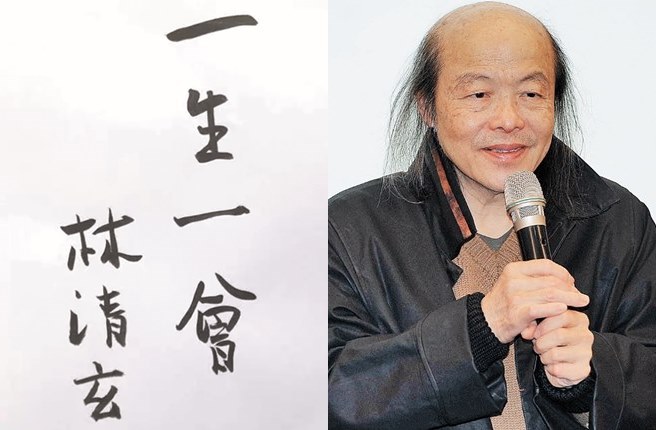 一生一會
林清玄